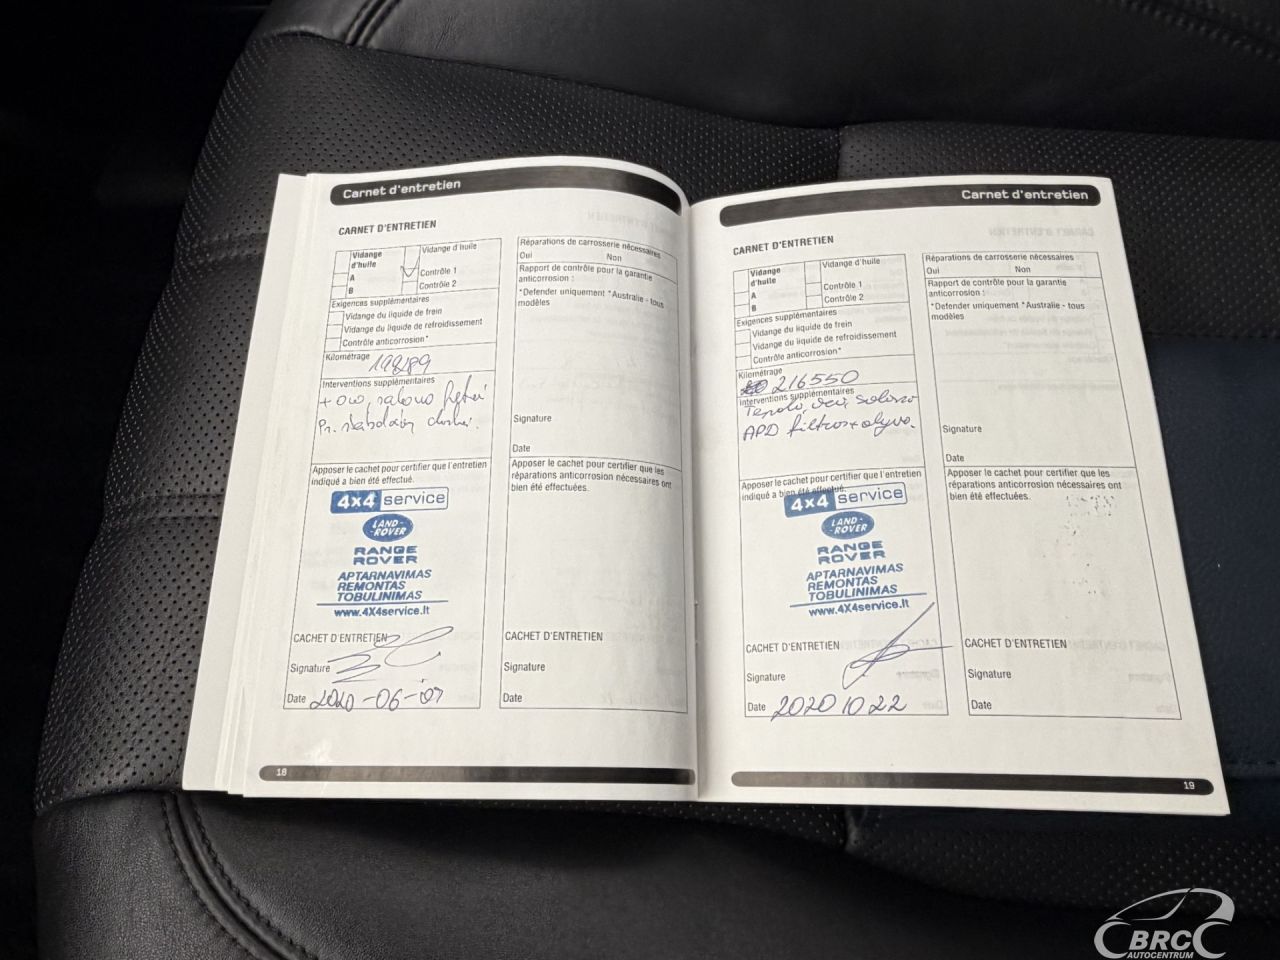 Carnet d'entretien
CARNET D'ENTRETIEN
Vidange d'huile
A
B
Vidange d'huile
Contrôle 1
Contrôle 2
Exigences supplémentaires
Vidange du liquide de frein
Vidange du liquide de refroidissement
Contrôle anticorrosion*
Kilométrage
198189
Interventions supplémentaires
+ oro, salono
Apposer le cachet pour certifier que l'entretien
indiqué a bien été effectué.
4x4 service
LAND-
-ROVER
RANGE
ROVER
APTARNAVIMAS
REMONTAS
TOBULINIMAS
www.4X4service.lt
CACHET D'ENTRETIEN
Signature
Date 2020-06-07
Réparations de carrosserie nécessaires
Oui Non
Rapport de contrôle pour la garantie
anticorrosion :
*Defender uniquement *Australie - tous
modèles
Signature
Date
Apposer le cachet pour certifier que les
réparations anticorrosion nécessaires ont
bien été effectuées.
CACHET D'ENTRETIEN
Signature
Date
18
Carnet d'entretien
CARNET D'ENTRETIEN
Vidange d'huile
A
B
Vidange d'huile
Contrôle 1
Contrôle 2
Exigences supplémentaires
Vidange du liquide de frein
Vidange du liquide de refroidissement
Contrôle anticorrosion*
Kilométrage
216550
Interventions supplémentaires
Tepalo, oro, salono
filtros + alyva.
Apposer le cachet pour certifier que l'entretien
indiqué a bien été effectué.
4x4 service
LAND-
-ROVER
RANGE
ROVER
APTARNAVIMAS
REMONTAS
TOBULINIMAS
www.4X4service.lt
CACHET D'ENTRETIEN
Signature
Date 2020 10 22
Réparations de carrosserie nécessaires
Oui Non
Rapport de contrôle pour la garantie
anticorrosion :
*Defender uniquement *Australie - tous
modèles
Signature
Date
Apposer le cachet pour certifier que les
réparations anticorrosion nécessaires ont
bien été effectuées.
CACHET D'ENTRETIEN
Signature
Date
19
BRC
AUTOCENTRUM